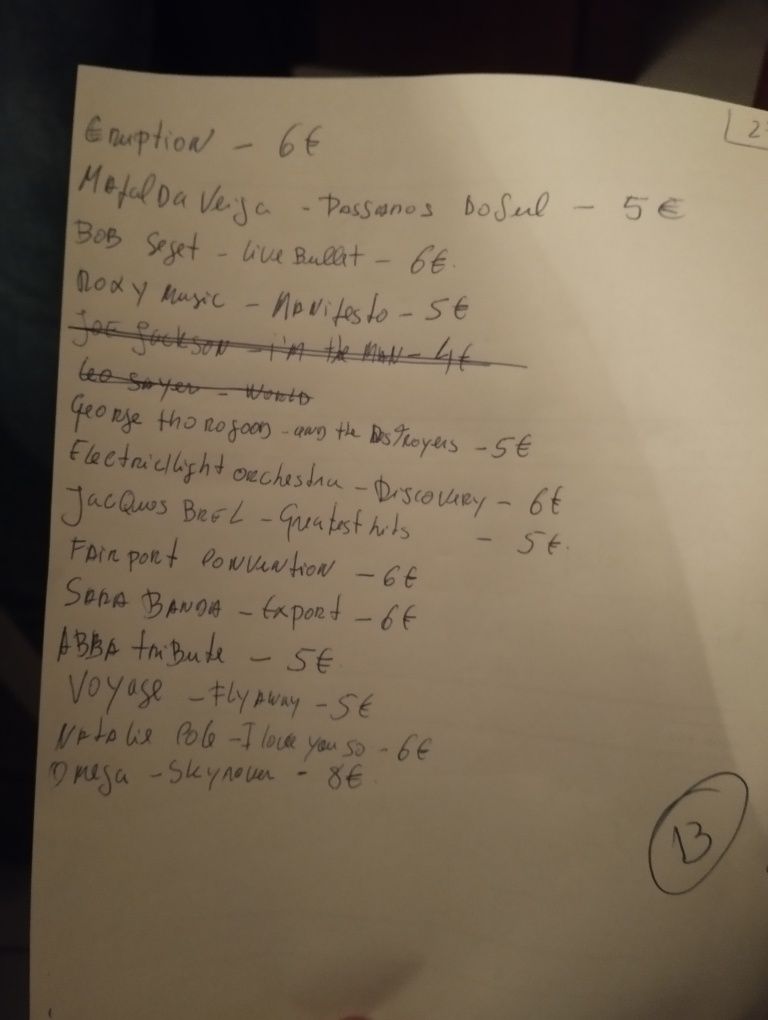 2
Eruption - 6€
Mafalda Veiga - Passaros Do Sul - 5€
BOB Seget - Live Bullet - 6€.
Roxy Music - Manifesto - 5€
Joe Jackson - i'm the MAN - 4€
Leo Sayer - World
George thorogood - and the Destroyers - 5€
Electriclight orchestra - Discovery - 6€
Jacques BREL - Greatest hits - 5€.
FAirport Convention - 6€
SARA BANDA - Export - 6€
ABBA tribute - 5€.
Voyage - Fly Away - 5€
Natalie Cole - I love you so - 6€
Omega - Skyrover - 8€.
13